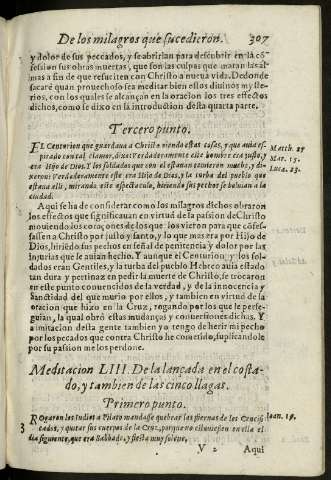 De los milagros que sucedieron. 307
y dolor de sus peccados, y se abririan para descubrir en la cõ-
fession sus obras muertas, que son las culpas que matan las al-
mas a fin de que resuciten con Christo a nueva vida. De donde
sacarè quan provechoso sea meditar bien estos divinos myste-
rios, con los quales se alcançan en la oracion los tres effectos
dichos, como se dixo en la introduccion desta quarta parte.
Tercero punto.
EL Centurion que guardava a Christo viendo estas cosas, y que avia es-
pirado con tal clamor, dixo: Verdaderamente este hombre era justo, y
era Hijo de Dios. Y los soldados que con el estavan temieron mucho, y di-
xeron: Verdaderamente este era Hijo de Dios, y la turba del pueblo que
estava alli, mirando este espectaculo, hiriendo sus pechos se bolvian a la
ciudad.
Matth. 27
Mar. 15.
Luca. 23.
Aqui se ha de considerar como los milagros dichos obraron
los effectos que significavan en virtud de la passion de Christo
moviendo los coraçones de los que los vieron para que cõfes-
sassen a Christo por justo y santo, y lo que mas era por Hijo de
Dios, hiriẽdo sus pechos en señal de penitencia y dolor por las
injurias que le avian hecho. Y aunque el Centurion y los sol-
dados eran Gentiles, y la turba del pueblo Hebreo avia estado
tan dura y pertinaz en pedir la muerte de Christo, se trocaron
en este punto convencidos de la verdad, y de la innocencia y
Sanctidad del que murio por ellos, y tambien en virtud de la
oracion que hizo en la Cruz, rogando por los que le perse-
guian, la qual obrò estas mudanças y conversiones dichas. Y
a imitacion desta gente tambien yo tengo de herir mi pecho
por los pecados que contra Christo he cometido, suplicandole
por su passion me los perdone.
Meditacion LIII. De la lançada en el costa-
do, y tambien de las cinco llagas.
Primero punto.
ROgaron los Iudios a Pilato mandasse quebrar las piernas de los Cruci-
ficados, y quitar sus cuerpos de la Cruz, porque no estuviessen en ella el
dia siguiente, que era Sabbado, y fiesta muy solẽne.
Ioan. 19.
3
V 2 Aqui